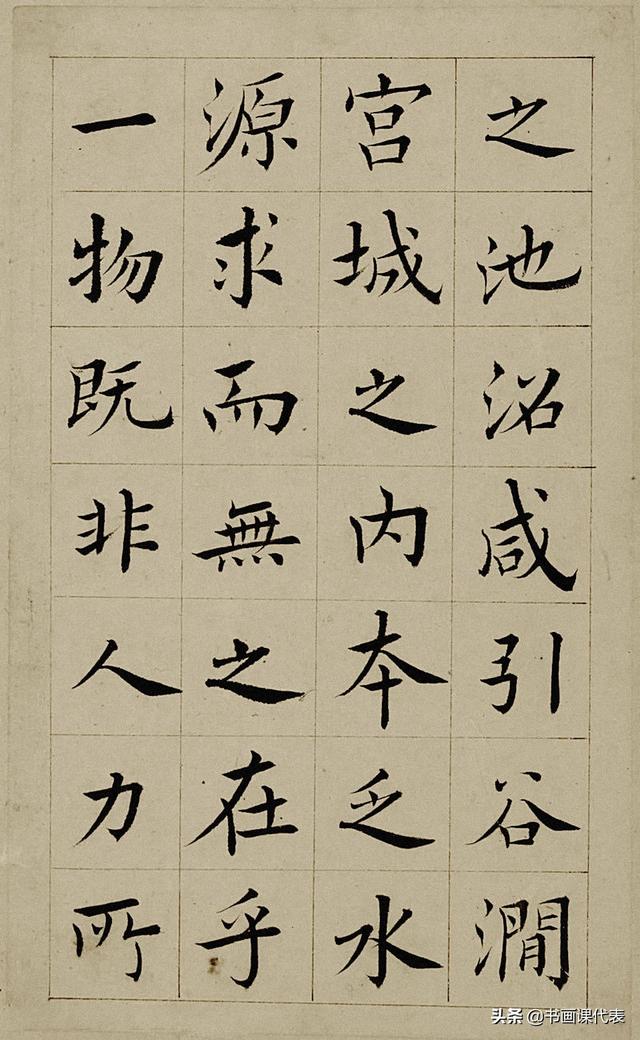 之池沼咸引谷澗
宮城之内本乏水
源求而無之在乎
一物既非人力所
头条 @书画课代表